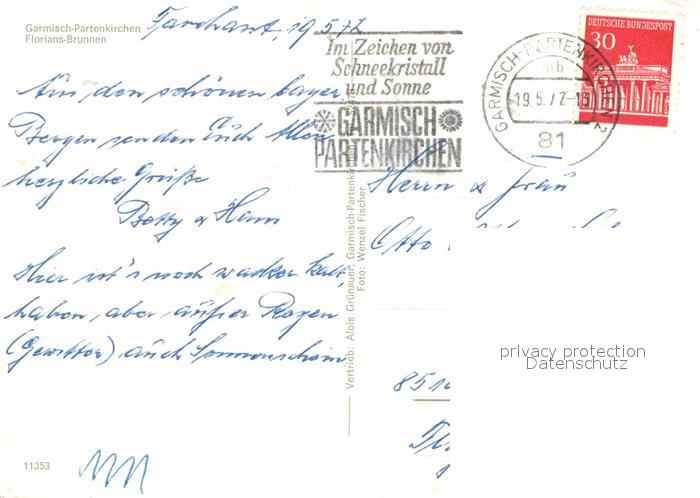 Garmisch-Partenkirchen
Florians-Brunnen
Farchant, 19.5.72
Im Zeichen von
Schneekristall
und Sonne
GARMISCH
PARTENKIRCHEN
GARMISCH-PARTENKIRCHEN 2
mb
19.5.72-18
81
DEUTSCHE BUNDESPOST
30
Aus den schönen bayer.
Bergen senden Euch Allen
herzliche Grüße
Betty u Hans
Hier ist's noch wacker kalt,
haben, aber außer Regen
(Gewitter) auch Sonnenschein
Herrn u Frau
Otto
851
Vertrieb: Alois Grünauer, Garmisch-Partenkirchen
Foto: Wenzel Fischer
privacy protection
Datenschutz
11353